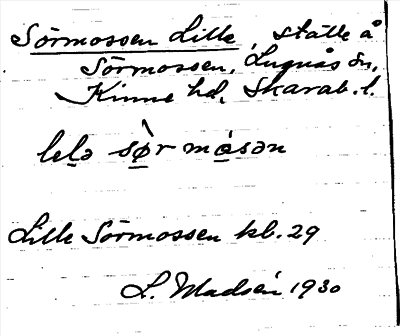 Sörmossen Lille, ställe å
Sörmossen, Lugnås sn,
Kinne hd, Skarab. l.
lelə sø̀r måsən
Lille Sörmossen kb. 29
L. Madsén 1930